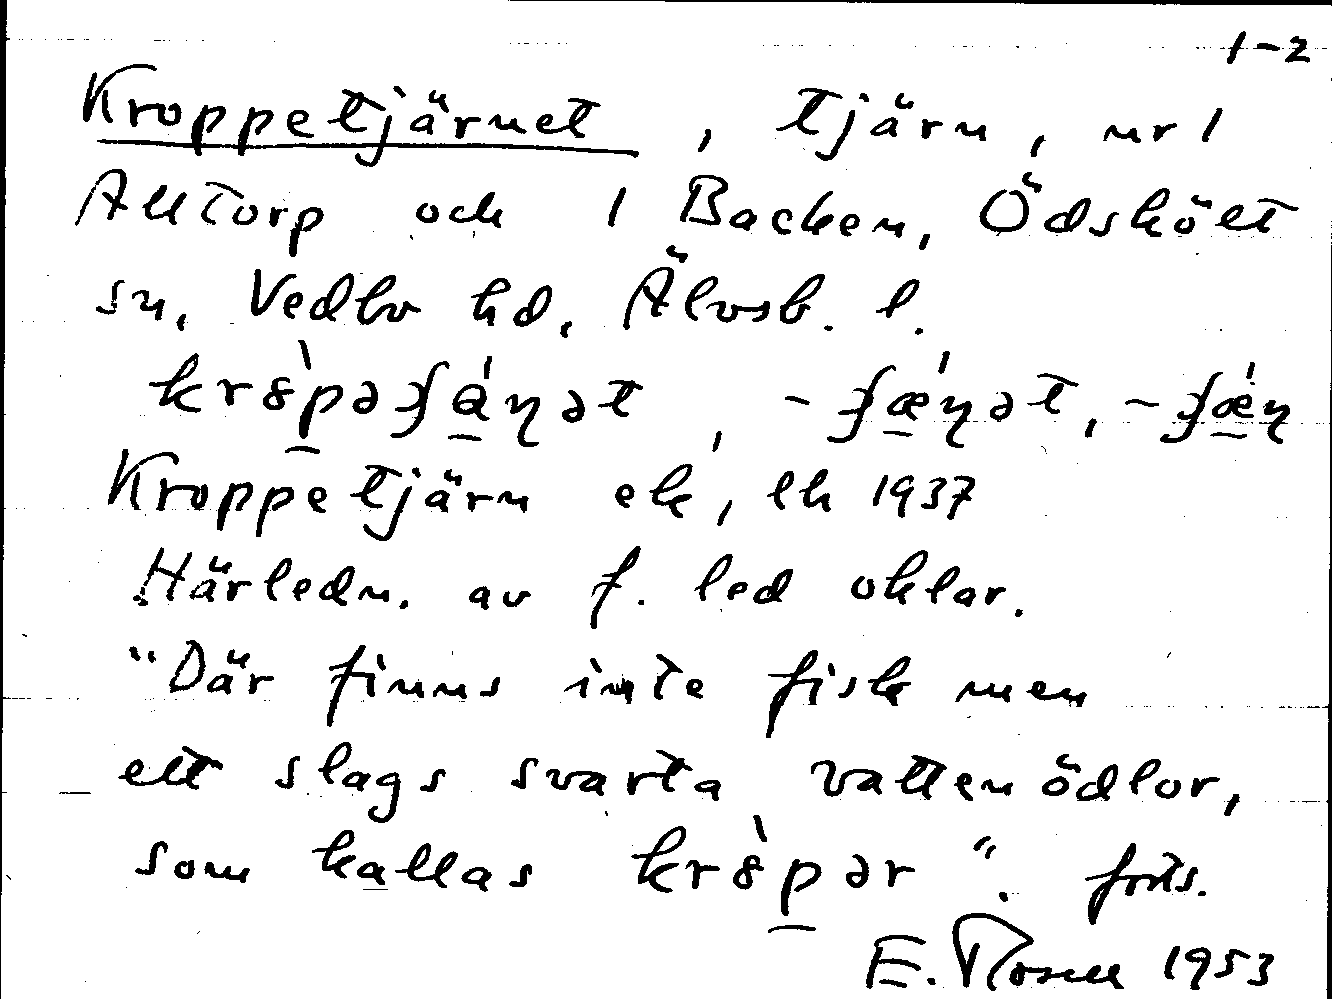 1-2
Kroppetjärnet, tjärn, nr 1
Alltorp och 1 Backen, Ödskölt
sn, Vedbo hd, Älvsb. l.
Kroppetjärn ek, lk 1937
Härledn. av f. led oklar.
"Där finns inte fisk men
ett slags svarta vattenödlor,
som kallas krȣ̀p̠ər". forts.
E. Rosell 1953